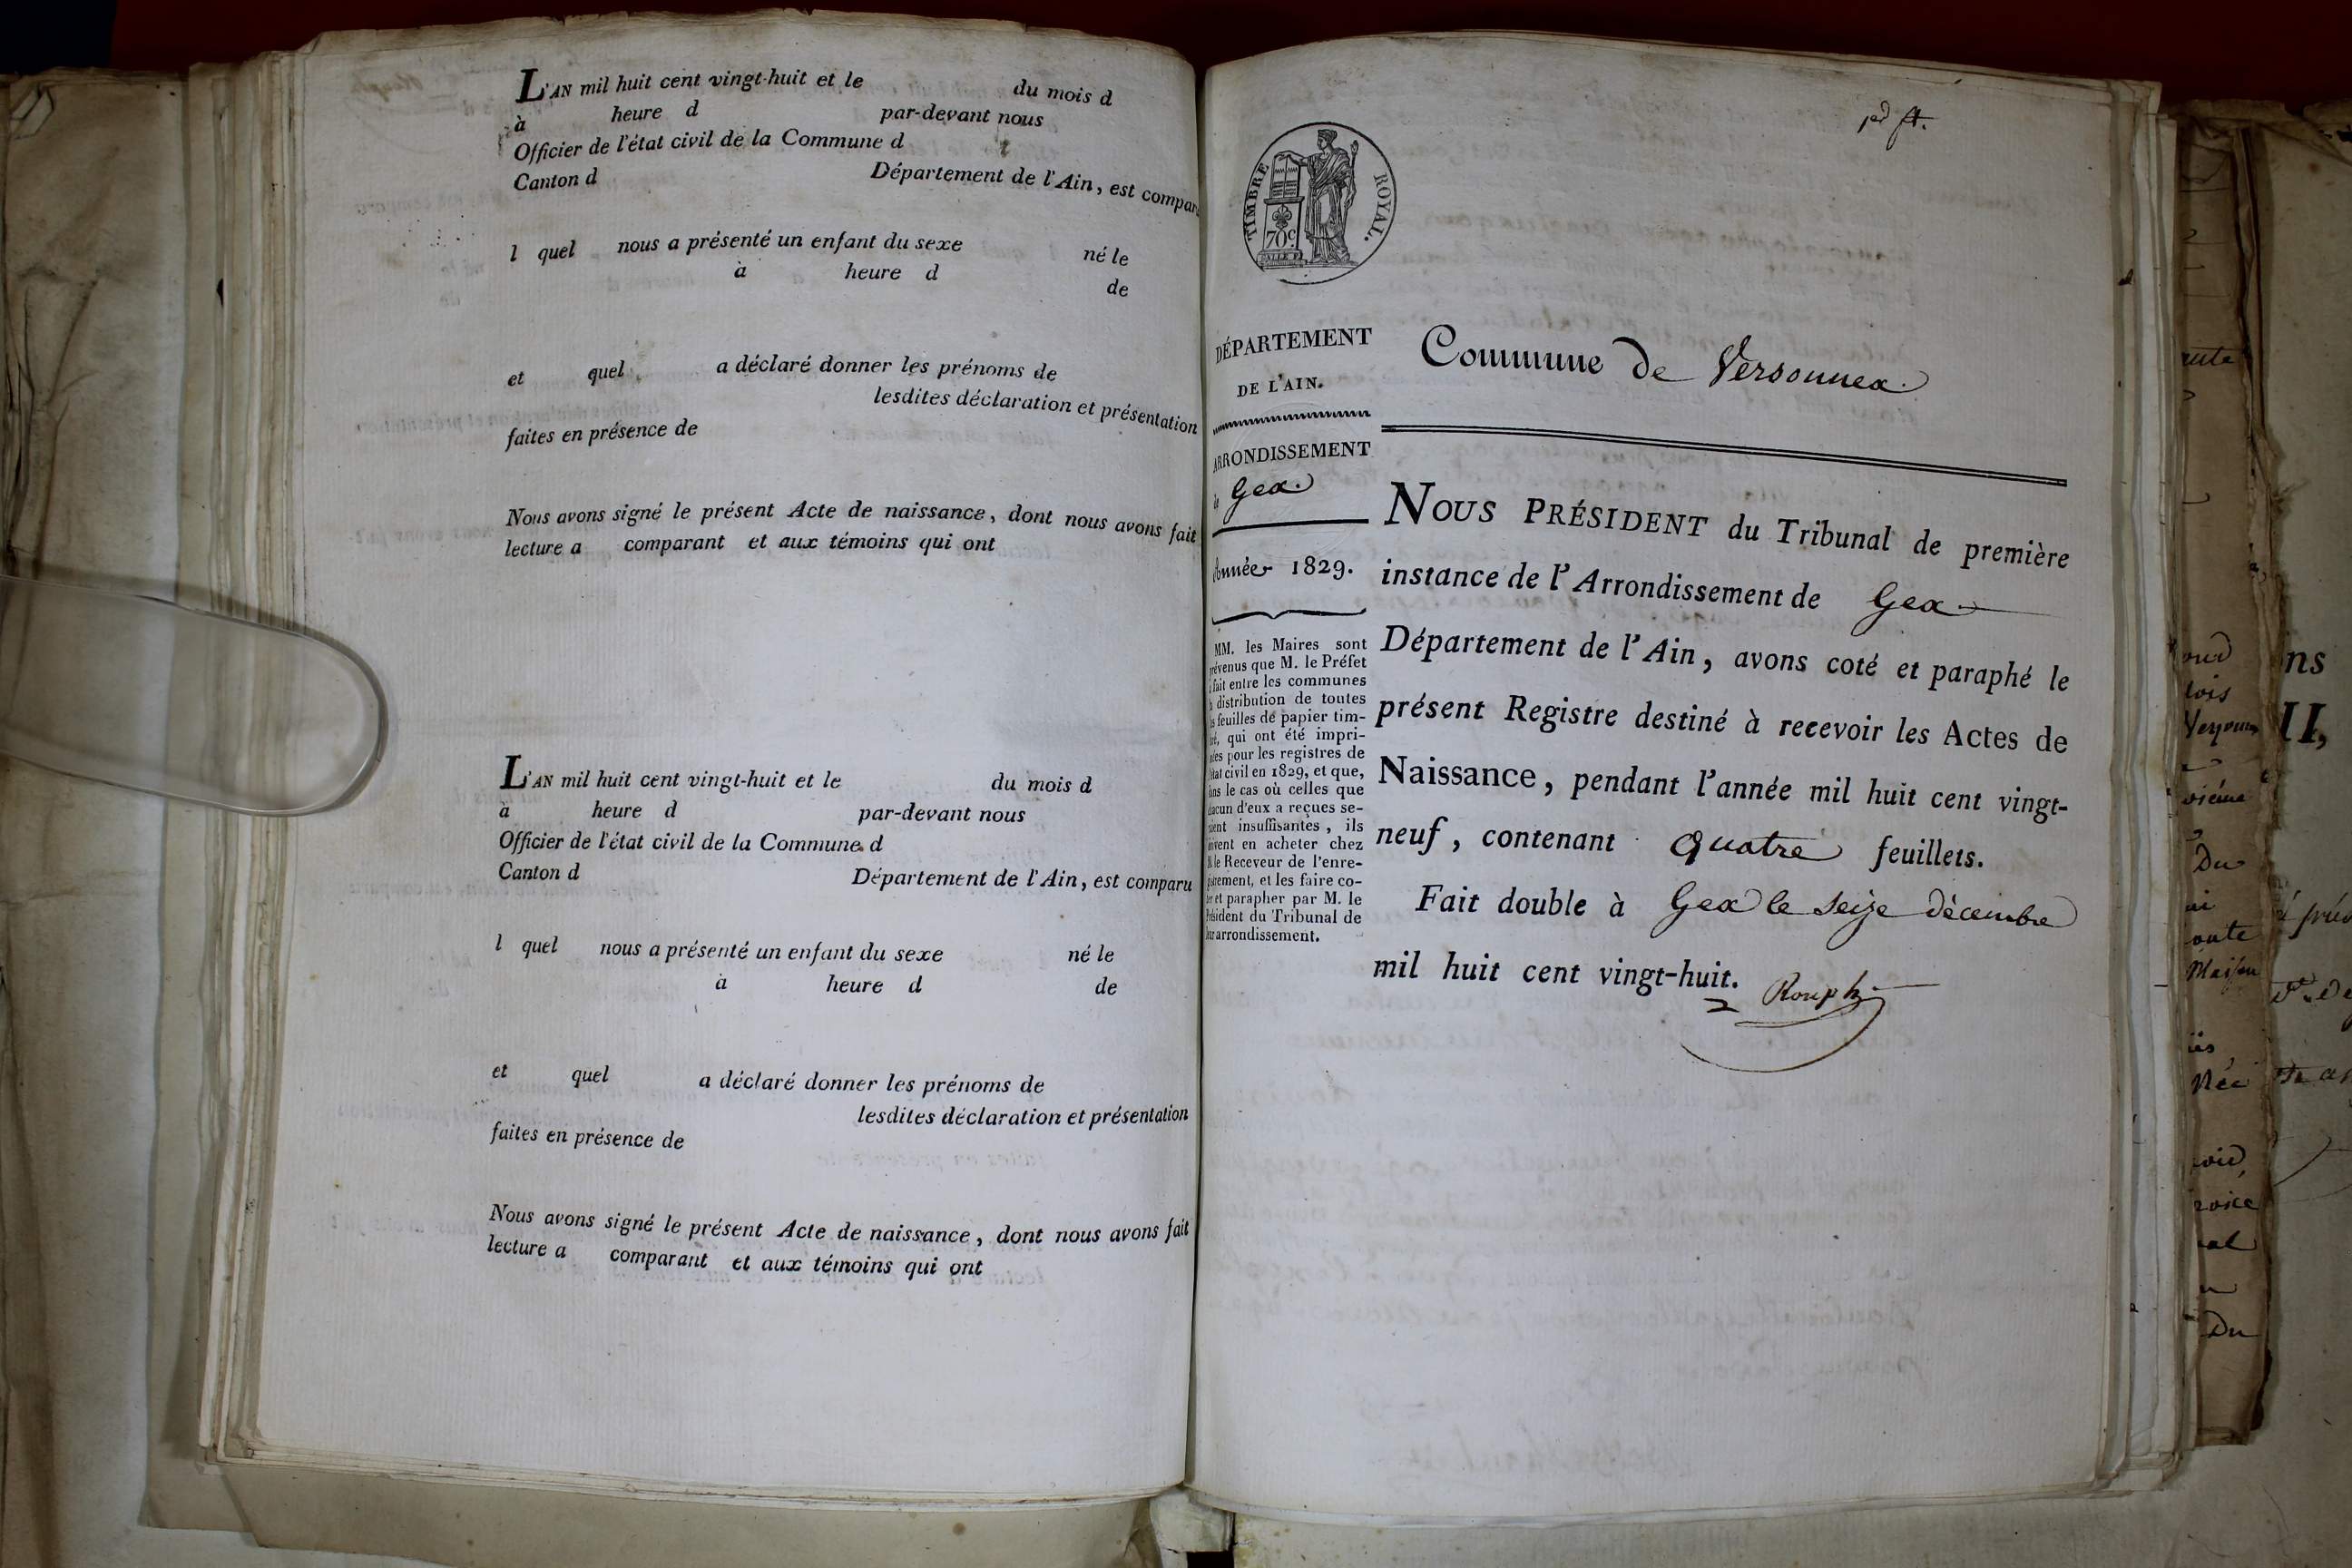 L'AN mil huit cent vingt-huit et le du mois d
à heure d par-devant nous
Officier de l'état civil de la Commune d
Canton d Département de l'Ain, est compar
l quel nous a présenté un enfant du sexe né le
à heure d de
et quel a déclaré donner les prénoms de
lesdites déclaration et présentation
faites en présence de
Nous avons signé le présent Acte de naissance, dont nous avons fait
lecture a comparant et aux témoins qui ont
L'AN mil huit cent vingt-huit et le du mois d
à heure d par-devant nous
Officier de l'état civil de la Commune d
Canton d Département de l'Ain, est comparu
l quel nous a présenté un enfant du sexe né le
à heure d de
et quel a déclaré donner les prénoms de
lesdites déclaration et présentation
faites en présence de
Nous avons signé le présent Acte de naissance, dont nous avons fait
lecture a comparant et aux témoins qui ont
TIMBRE ROYAL.
70c
DÉPARTEMENT
DE L'AIN.
ARRONDISSEMENT
Gex.
Année 1829.
MM. les Maires sont
prévenus que M. le Préfet
a fait entre les communes
la distribution de toutes
les feuilles de papier tim-
bré, qui ont été impri-
mées pour les registres de
l'état civil en 1829, et que,
dans le cas où celles que
chacun d'eux a reçues se-
raient insuffisantes, ils
doivent en acheter chez
M. le Receveur de l'enre-
gistrement, et les faire co-
ter et parapher par M. le
Président du Tribunal de
leur arrondissement.
Commune de Versonnex.
NOUS PRÉSIDENT du Tribunal de première
instance de l'Arrondissement de Gex
Département de l'Ain, avons coté et paraphé le
présent Registre destiné à recevoir les Actes de
Naissance, pendant l'année mil huit cent vingt-
neuf, contenant quatre feuillets.
Fait double à Gex le seize décembre
mil huit cent vingt-huit.
Rouph